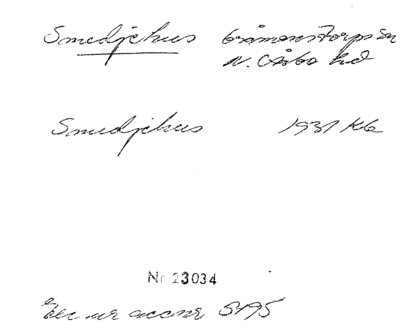 Smedjehus Gråmanstorps sn
N. Åsbo hd
Smedjehus 1931 Kb
Nr 23034
Exc ur accnr 5195